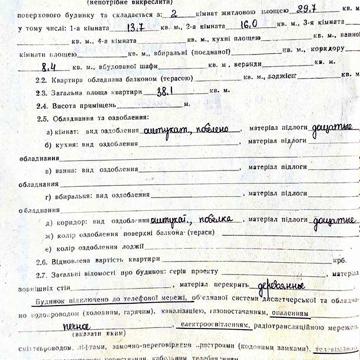 (непотрібне викреслити)
поверхового будинку та складається з: 2 кімнат житловою площею 29,7 кв. м
у тому числі: 1-а кімната 13,7 кв. м, 2-а кімната 16,0 кв. м, 3-я кімната
кв. м, 4-а кімната кв. м, кухні площею кв. м, ванної
кімнати площею кв. м, вбиральні (поєднаної) кв. м, коридору
8,4 кв. м, вбудованої шафи кв. м, веранди кв. м.
2.2. Квартира обладнана балконом (терасою) кв. м, лоджією кв. м.
2.3. Загальна площа квартири 38,1 кв. м.
2.4. Висота приміщень м.
2.5. Обладнання та оздоблення:
а) кімнат: вид оздоблення штукат., побелено, матеріал підлоги дощатые
б) кухня: вид оздоблення , матеріал підлоги
обладнання
в) ванна: вид оздоблення , матеріал підлоги
обладнання
г) вбиральня: вид оздоблення , матеріал підлоги
обладнання
д) коридор: вид оздоблення штукат., побелка, матеріал підлоги дощатые
ж) колір оздоблення поверхні балкона (тераси)
е) колір оздоблення лоджії
2.6. Відновлена вартість квартири крб.
2.7. Загальні відомості про будинок: серія проекту , матеріал
зовнішніх стін , матеріал перекрить деревянные
Будинок підключено до телефонної мережі, об'єднаної системи диспетчерської та обладнано
водопроводом (холодним, гарячим), каналізацією, газопостачанням, опаленням
печное електроосвітленням, радіотрансляційною мережею
(вказати яким)
сміттєпроводом, ліфтами, замочно-переговорними пристроями (кодовими замками),
кабельним телебаченням